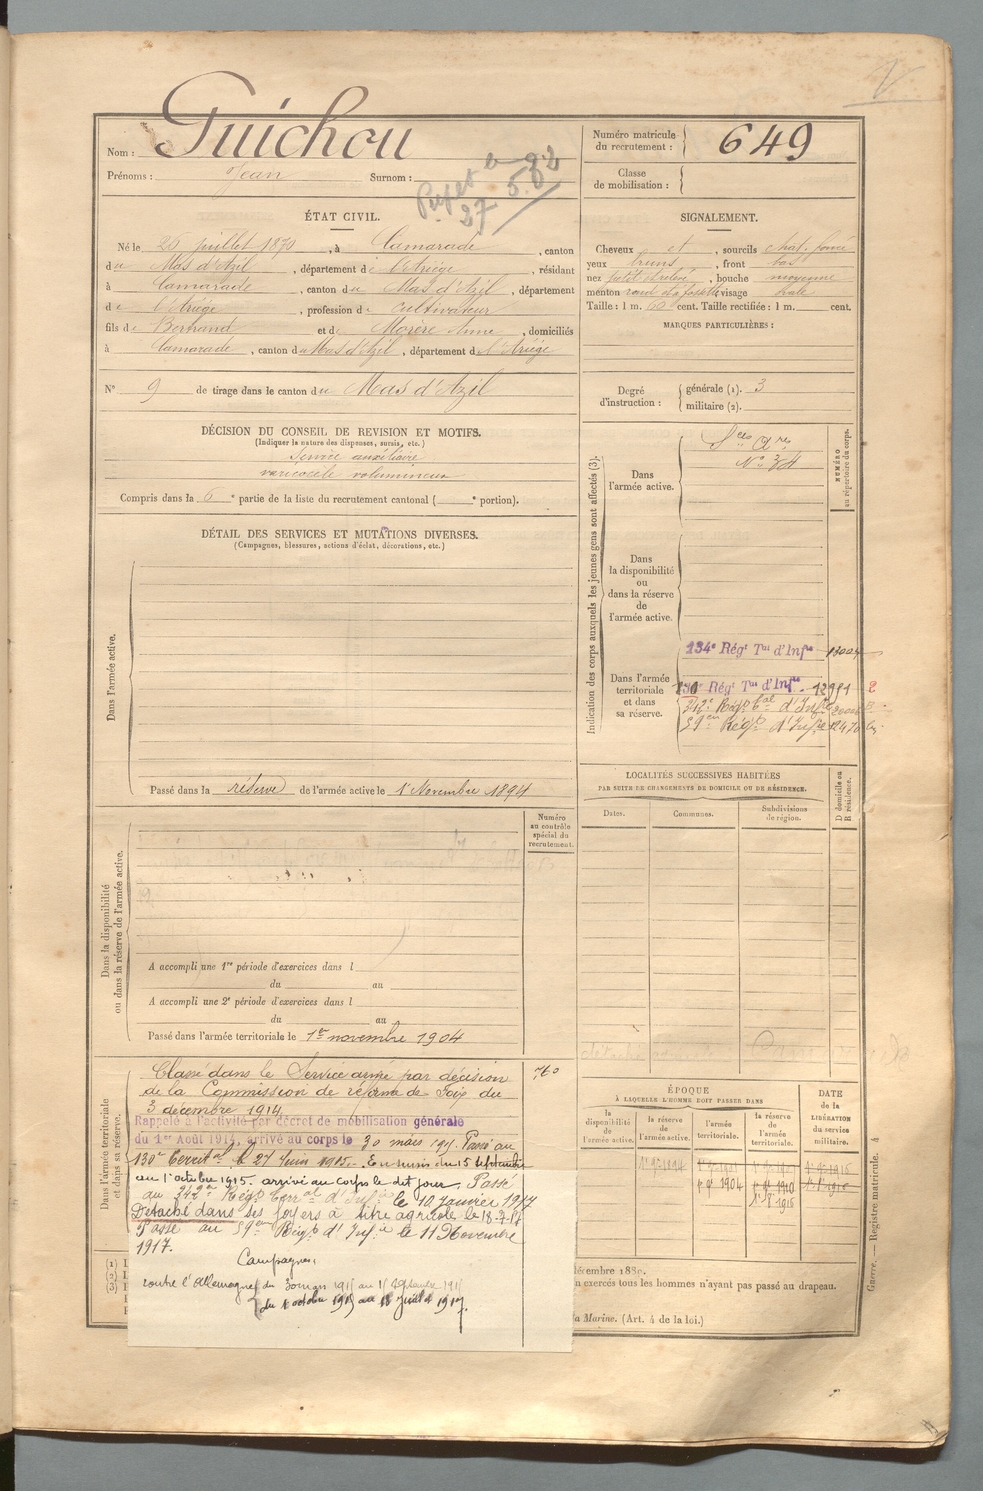 Nom : Guichou
Prénoms : Jean Surnom :
Numéro matricule du recrutement : 649
Classe de mobilisation :
ÉTAT CIVIL.
Né le 26 juillet 1870, à Camarade, canton
du Mas d'Azil, département de l'Ariège, résidant
à Camarade, canton du Mas d'Azil, département
de l'Ariège, profession de cultivateur
fils de Bertrand et de Morère Anne, domiciliés
à Camarade, canton du Mas d'Azil, département de l'Ariège
N° 9 de tirage dans le canton du Mas d'Azil
SIGNALEMENT.
Cheveux et, sourcils chat. foncé
yeux bruns, front bas
nez petit et relevé, bouche moyenne
menton rond et à fossette, visage ovale
Taille : 1 m. cent. Taille rectifiée : 1 m. cent.
MARQUES PARTICULIÈRES :
Degré d'instruction : générale (1). 3
militaire (2).
DÉCISION DU CONSEIL DE REVISION ET MOTIFS.
(Indiquer la nature des dispenses, sursis, etc.)
Service auxiliaire
varicocèle volumineux
Compris dans la 6e partie de la liste du recrutement cantonal ( e portion).
DÉTAIL DES SERVICES ET MUTATIONS DIVERSES.
(Campagnes, blessures, actions d'éclat, décorations, etc.)
Dans l'armée active.
Passé dans la réserve de l'armée active le 1er Novembre 1894
Indication des corps auxquels les jeunes gens sont affectés (3).
NUMÉRO au répertoire du corps.
Dans l'armée active.
Sces Ares
N° 34
Dans la disponibilité ou dans la réserve de l'armée active.
Dans l'armée territoriale et dans sa réserve.
134e Régt Tal d'Infie 13004
130 Régt Tal d'Infie 12981
342e Régt d'Infie
59en Régt d'Infie 12470
LOCALITÉS SUCCESSIVES HABITÉES
PAR SUITE DE CHANGEMENTS DE DOMICILE OU DE RÉSIDENCE.
D domicile ou R résidence.
Dates. Communes. Subdivisions de région.
Numéro au contrôle spécial du recrutement.
Dans la disponibilité ou dans la réserve de l'armée active.
A accompli une 1re période d'exercices dans l
du au
A accompli une 2e période d'exercices dans l
du au
Passé dans l'armée territoriale le 1er novembre 1904
Dans l'armée territoriale et dans sa réserve.
Classé dans le Service armé par décision
de la Commission de réforme de Foix du
3 décembre 1914.
Rappelé à l'activité par décret de mobilisation générale
du 1er Août 1914, arrivé au corps le 30 mars 1915. Passé au
130e Territal le 27 Juin 1915. En sursis du 15 Septembre
au 1er octobre 1915. arrivé au Corps le dit jour. Passé
au 342e Régt Terral d'Infie le 10 Janvier 1917
Détaché dans ses foyers à titre agricole le 18-7-17
Passé au 59en Régt d'Infie le 11 Novembre
1917.
Campagnes,
contre l'Allemagne du 30 mars 1915 au
du 1 octobre 1915 au 18 Juillet 1917.
ÉPOQUE
À LAQUELLE L'HOMME DOIT PASSER DANS
la disponibilité de l'armée active.
la réserve de l'armée active.
l'armée territoriale.
la réserve de l'armée territoriale.
DATE de la LIBÉRATION du service militaire.
1er 9bre 1894
1904
1910
1916
écembre 188
n exercés tous les hommes n'ayant pas passé au drapeau.
la Marine. (Art. 4 de la loi.)
Guerre. — Registre matricule. 4
(1)
(2)
(3)